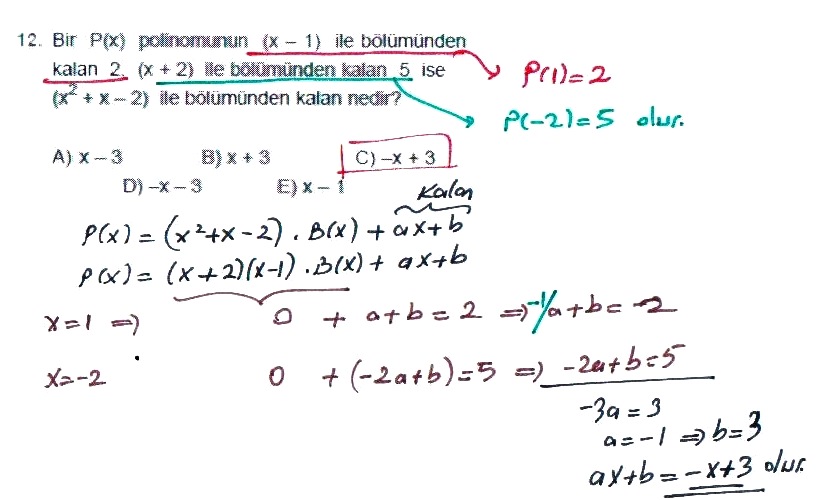 12. Bir P(x) polinomunun (x – 1) ile bölümünden
kalan 2, (x + 2) ile bölümünden kalan 5 ise
(x² + x – 2) ile bölümünden kalan nedir?
P(1)=2
P(-2)=5 olur.
A) x – 3 B) x + 3 C) –x + 3
D) –x – 3 E) x – 1
Kalan
P(x) = (x²+x-2) . B(x) + ax+b
P(x) = (x+2)(x-1) . B(x) + ax+b
x=1 ⇒ 0 + a+b = 2 ⇒ -1/a+b = -2
x=-2 0 + (-2a+b)=5 ⇒ -2a+b=5
-3a = 3
a = -1 ⇒ b=3
ax+b = -x+3 olur.